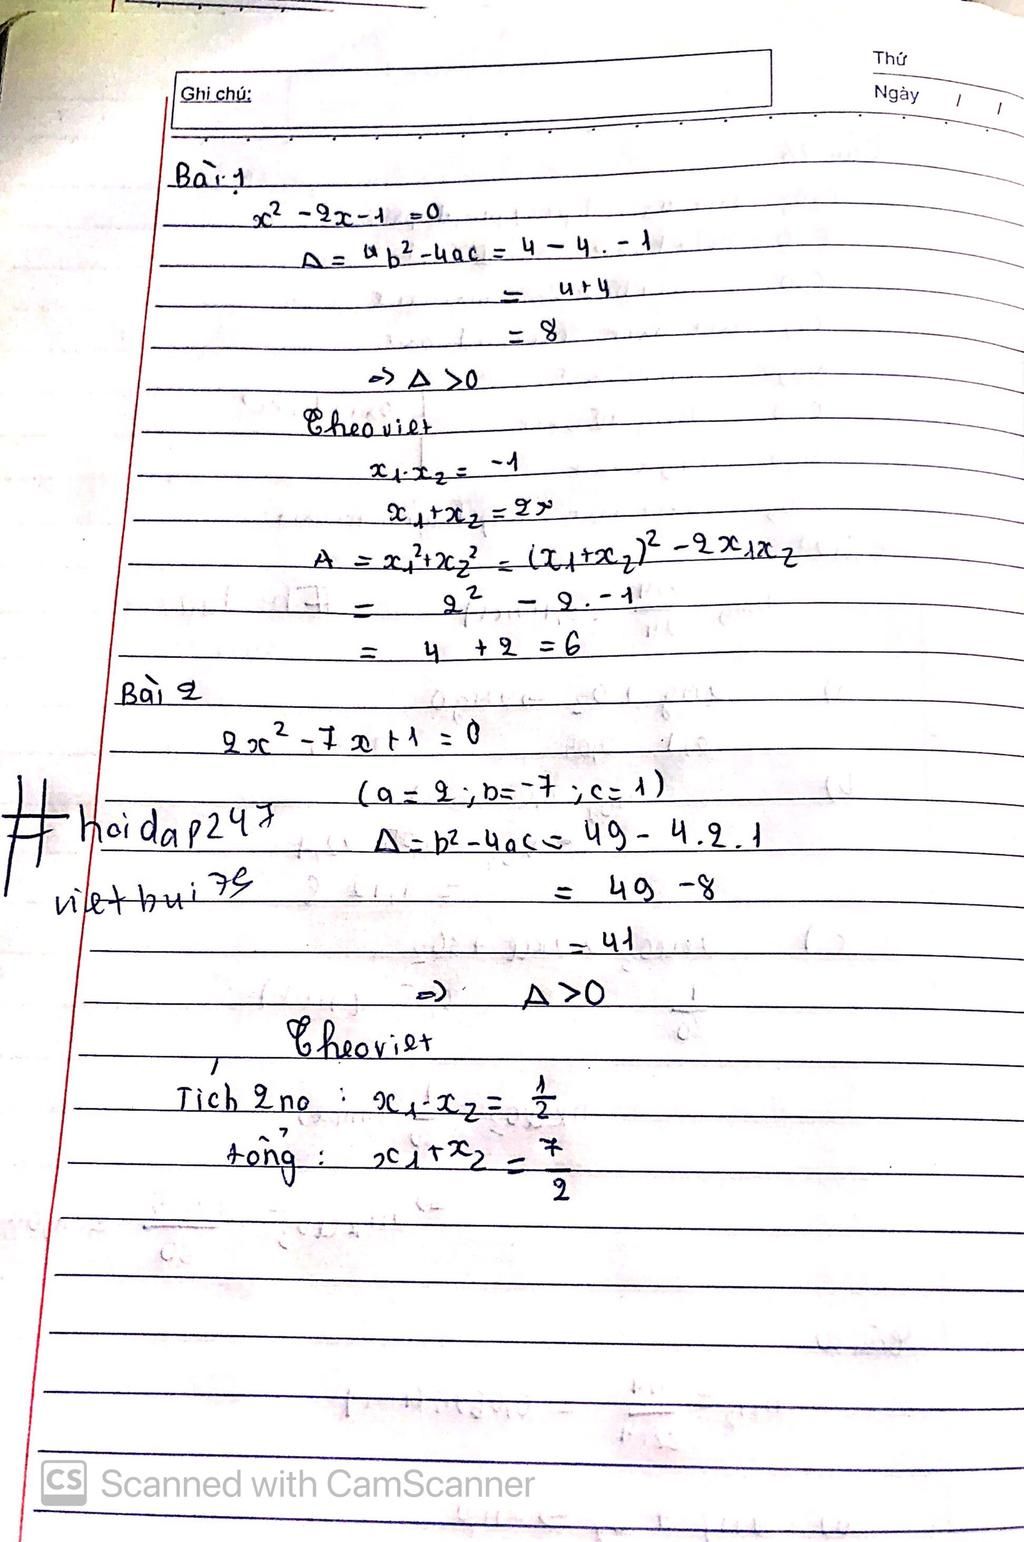 Thứ
Ghi chú:
Ngày / /
Bài 1
x² - 2x - 1 = 0
Δ = b² - 4ac = 4 - 4. - 1
= 4 + 4
= 8
=> Δ > 0
Theo viet
x₁.x₂ = -1
x₁ + x₂ = 2
A = x₁² + x₂² = (x₁ + x₂)² - 2x₁x₂
= 2² - 2. - 1
= 4 + 2 = 6
Bài 2
2x² - 7x + 1 = 0
(a = 2 ; b = -7 ; c = 1)
#hoidap247
Δ = b² - 4ac = 49 - 4.2.1
vietbui75
= 49 - 8
= 41
=> Δ > 0
Theo viet
Tích 2 no : x₁.x₂ = 1/2
tổng : x₁ + x₂ = 7/2
CS Scanned with CamScanner